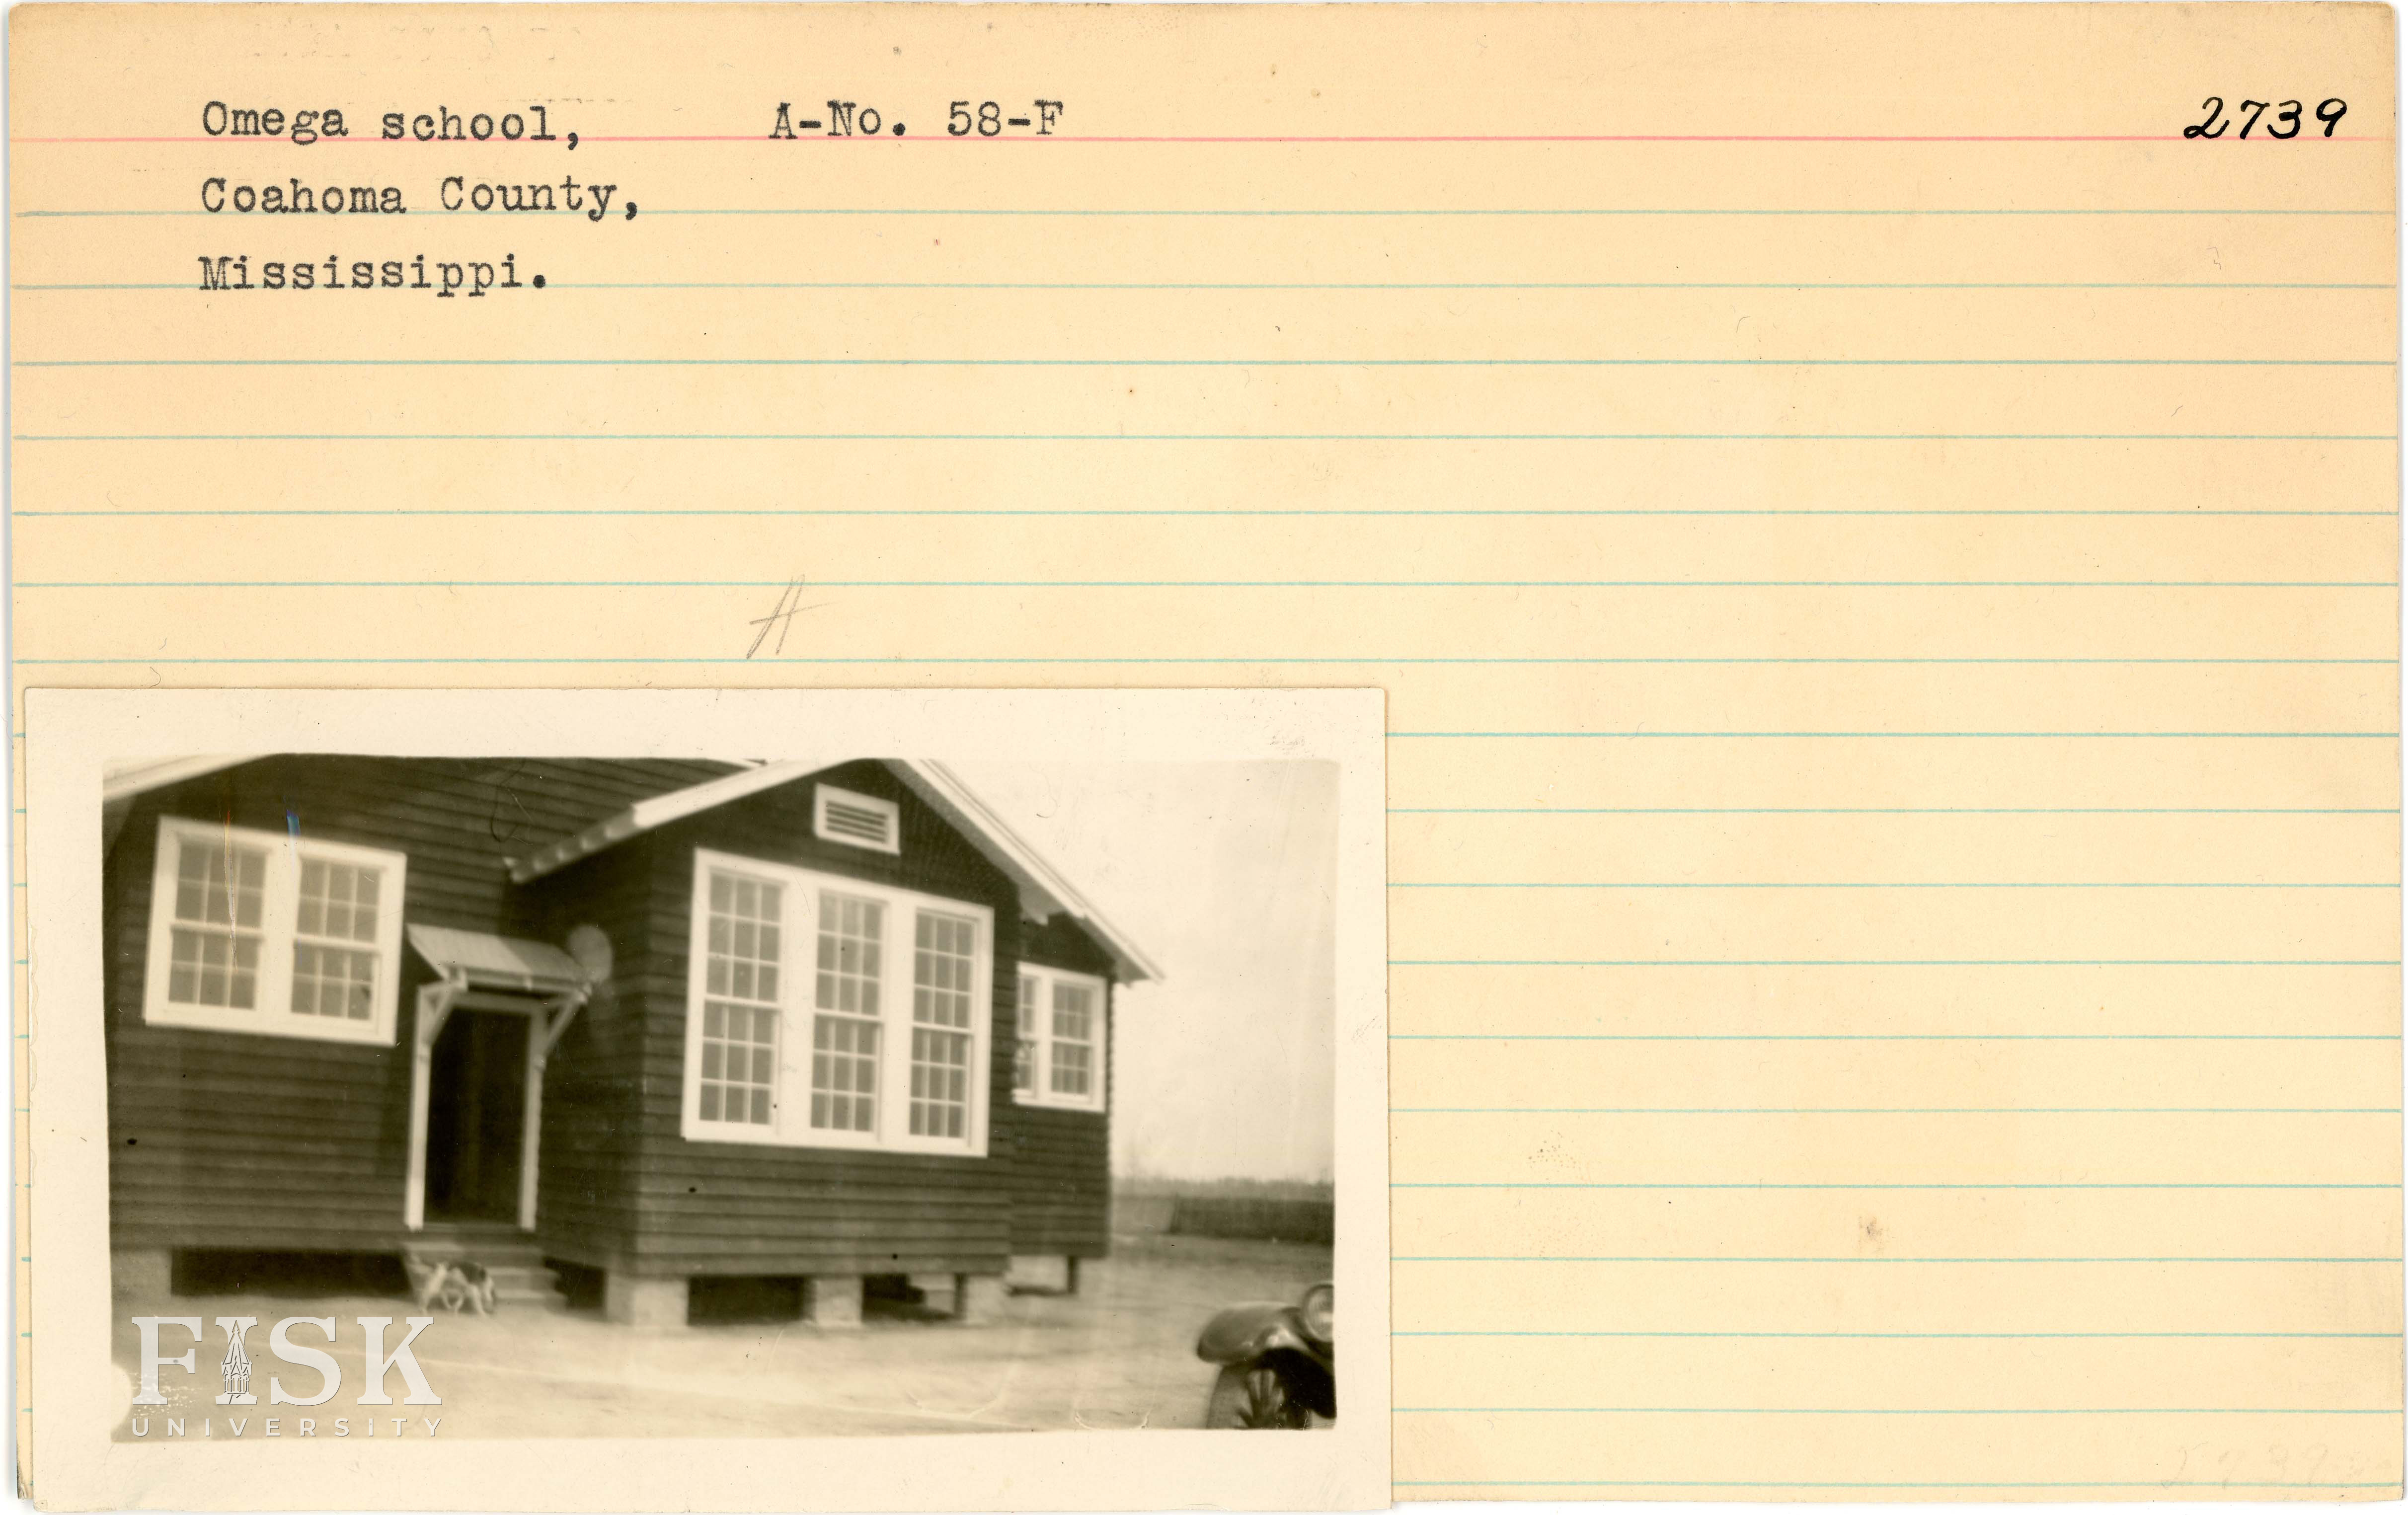 Omega school, A-No. 58-F 2739
Coahoma County,
Mississippi.
A
FISK
UNIVERSITY